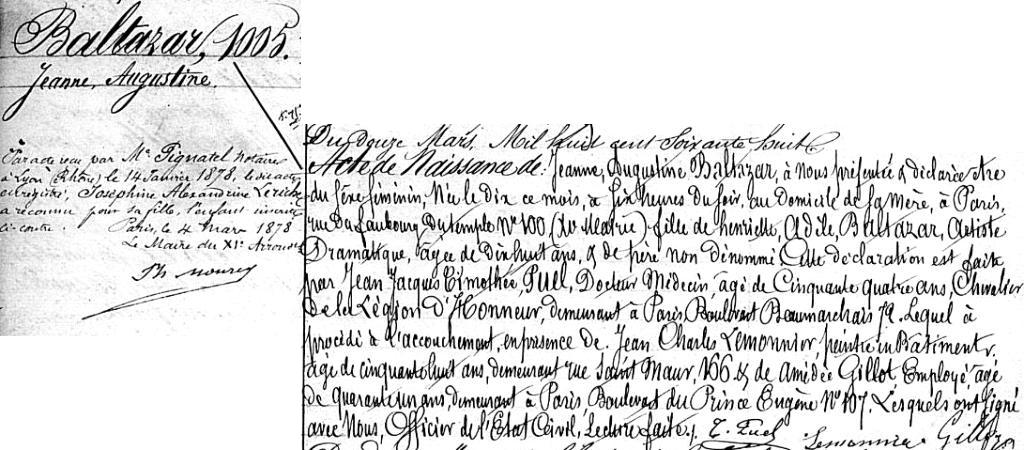 Baltazar, 1005.
Jeanne, Augustine.
Par acte reçu par Me Pignatel Notaire
à Lyon (Rhône) le 14 Janvier 1878, le dit acte
enregistré, Joséphine Alexandrine
a reconnu pour sa fille, l'enfant inscrit
ci-contre. Paris, le 4 Mars 1878
Le Maire du XIe Arrondt
Du douze Mars, Mil huit cent soixante huit
Acte de Naissance de: Jeanne, Augustine Baltazar, à Nous présentée & déclarée être
du sexe féminin, Née le dix ce mois, à six heures du soir, au Domicile de sa Mère, à Paris,
rue du faubourg du temple No 100 (Xe Mairie) - fille de henriette, Adèle, Baltazar, Artiste
Dramatique, âgée de dix huit ans, & de père non dénommé. Cette déclaration est faite
par Jean Jacques Timothée, Puel, Docteur Médecin, âgé de Cinquante quatre ans, Chevalier
de la Légion D'Honneur, demeurant à Paris Boulevart Beaumarchais 79. Lequel à
procédé à l'accouchement, en présence de. Jean Charles Lemonnier, peintre en Bâtiments,
âgé de cinquante huit ans, demeurant rue Saint Maur, 166 & de Amédée Gillot Employé, âgé
de quarante un ans, demeurant à Paris, Boulevart du Prince Eugène No 107. Lesquels ont signé
avec Nous, Officier de l'Etat Civil, Lecture faite. T. Puel Lemonnier Gillot